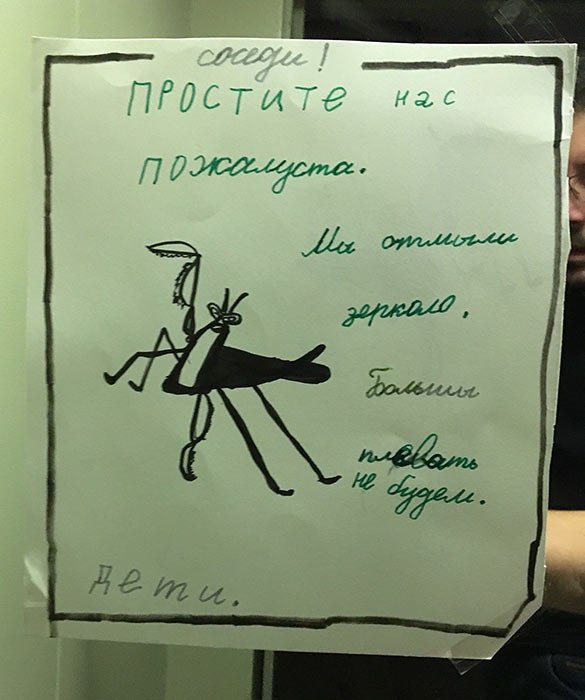 соседи!
ПРОСТИТЕ нас
пожалуста.
Мы отмыли
зеркало.
Большы
плевать
не будем.
дети.